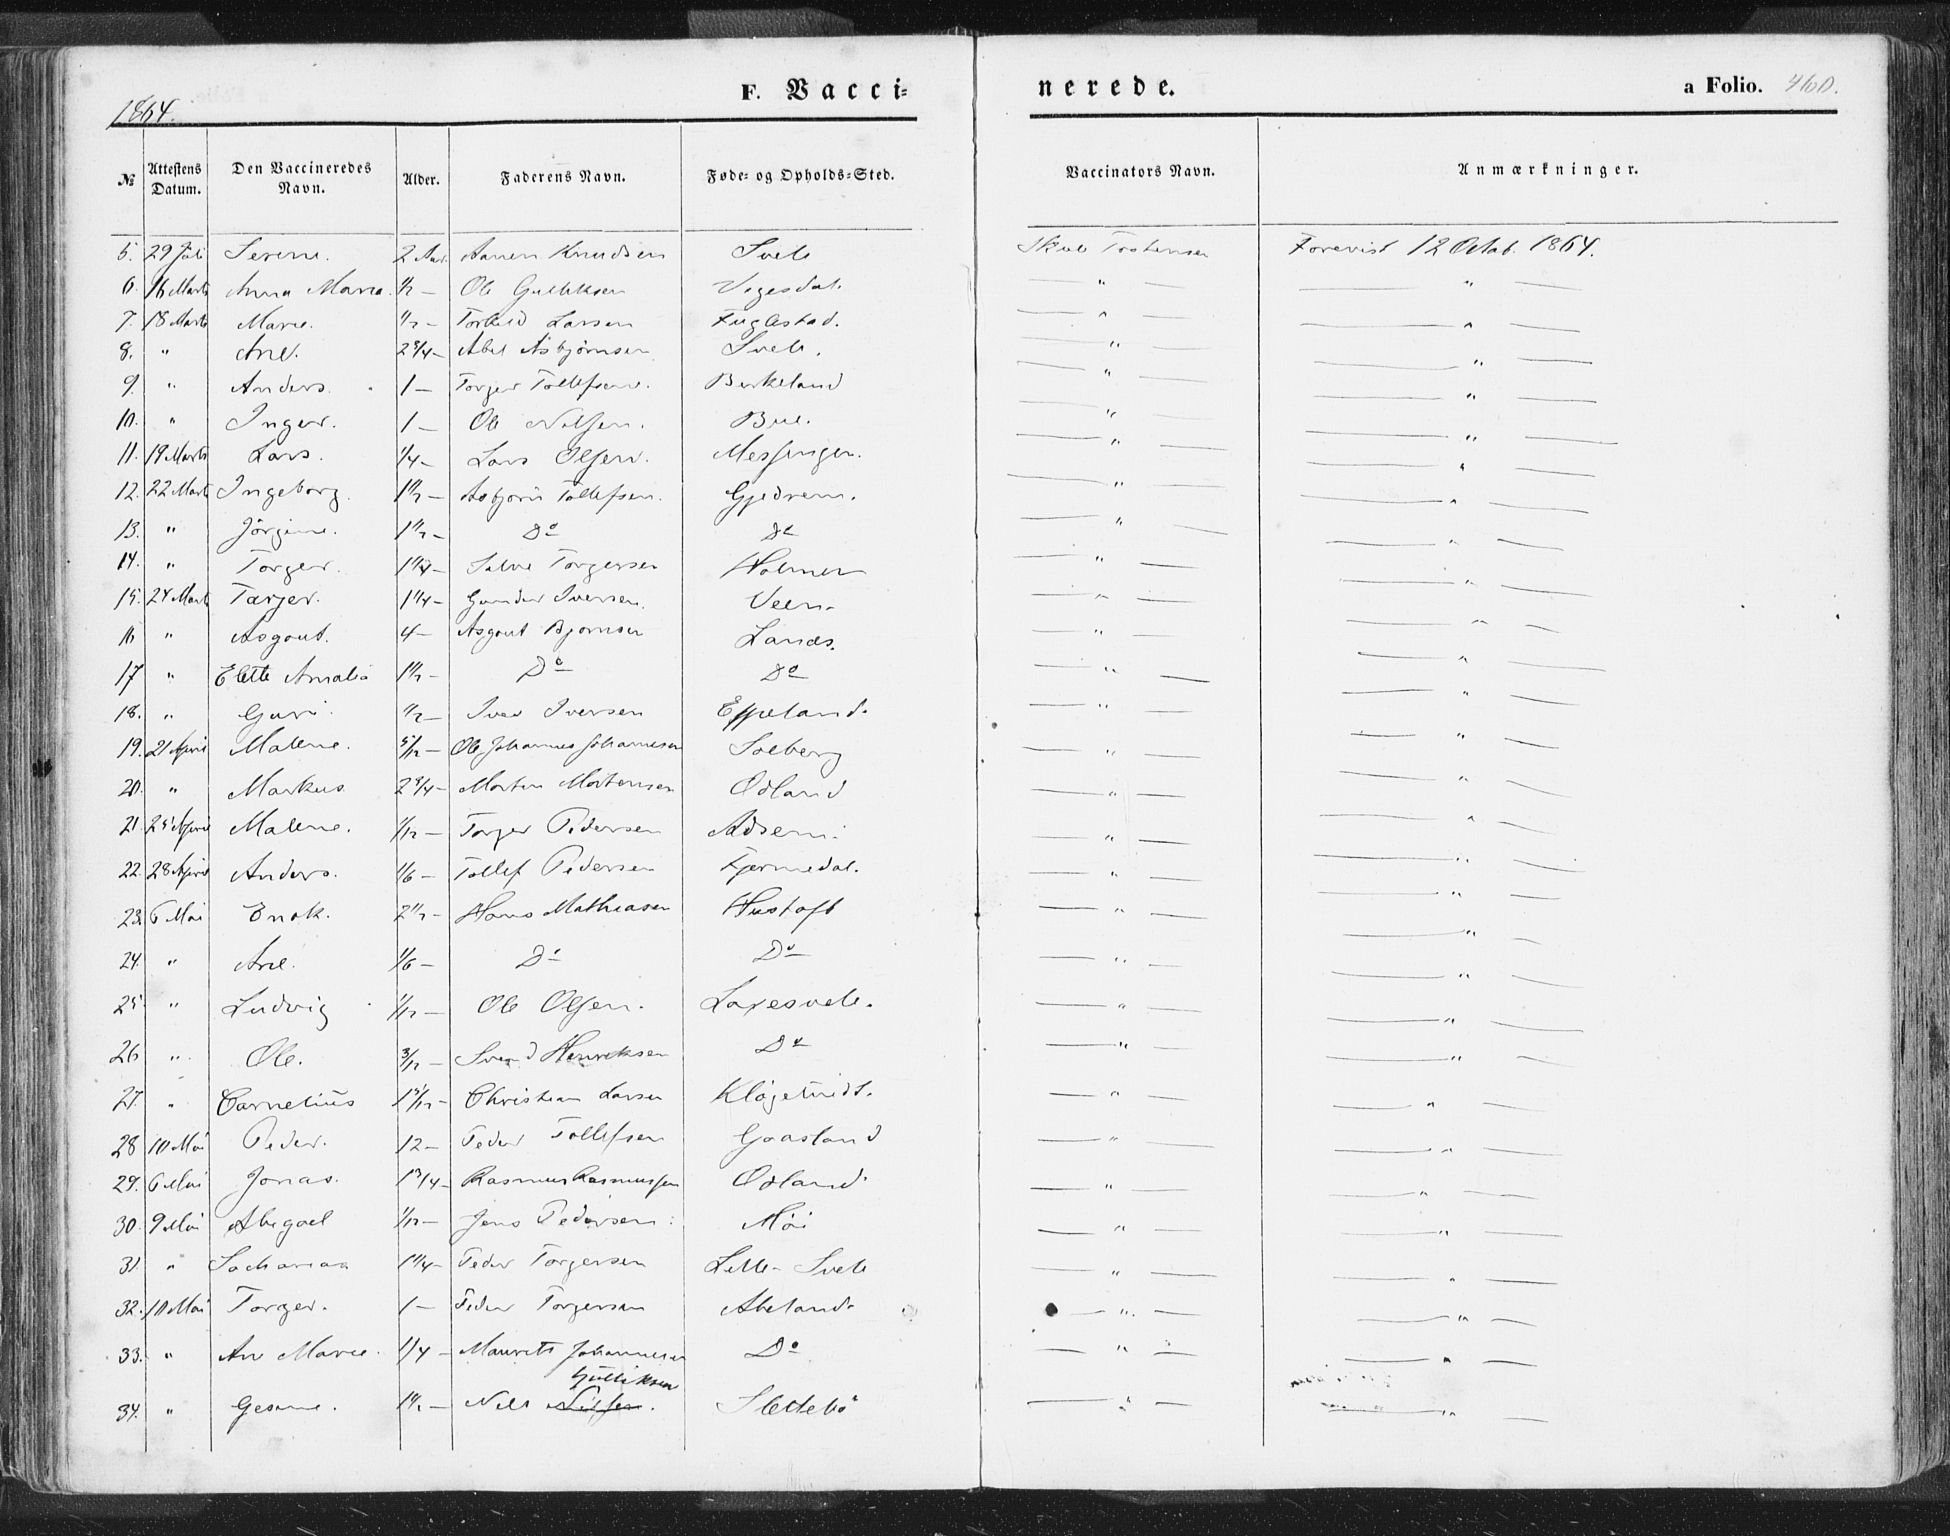 1864.
F. Vacci-
nerede.
a Folio. 460.
No Attestens Datum. Den Vaccineredes Navn. Alder. Faderens Navn. Føde- og Opholds-Sted. Vaccinators Navn. Anmærkninger.
5. 29 Juli Serine. 2 Aar Knudsen Svele Torstensen Forevist 12 Octob. 1864.
6. 16 Marts Anna Maria. 1/2 — Ole Gulliksen " "
7. 18 Marts Marie. 1/2 — Larsen Fuglestad. " "
8. " Ane. 2 3/4 — Abel Asbjørnsen Svele. " "
9. " Anders. 1 — Torger Tollefsen. Birkeland " "
10. " Inger. 1 — Ole Nilsen. Bue. " "
11. 19 Marts Lars. 1/4 — Lars Olsen. Messingen. " "
12. 22 Marts Ingeborg. 1 1/2 — Asbjørn Tollefsen. Gjedrem. " "
13. " Jørgine. 1 1/2 — Do Do " "
14. " Torger. 1 1/4 — Salve Torgersen Holmen " "
15. 24 Marts Tarjer. 1 1/4 — Gunder Iversen. Veen. " "
16 " Asgout. 4 — Asgout Bjørnsen Landes. " "
17 " Elette Amalia 1 1/2 — Do Do " "
18. " Guri. 1/2 — Iver Iversen Eppeland. " "
19. 21 April Malene. 5/12 — Ole Johannes Johannesen Solberg " "
20. " Markus 2 3/4 — Morten Mortensen Ødland " "
21. 25 April Malene. 1/12 — Torger Pedersen " "
22. 28 April Anders. 1/6 — Tollef Pedersen Fjermedal. " "
23. 6 Mai Enok. 2 1/2 — Hans Mathiasen Hustoft " "
24. " Ane. 1/6 — Do Do " "
25 " Ludvig 1/12 — Ole Olsen. Laxesvele. " "
26 " Ole. 3/12 — Svend Henriksen Do " "
27. " Cornelius Christian Larsen Kløgetvidt. " "
28 10 Mai Peder. 12 — Peder Tollefsen Gaasland " "
29. 6 Mai Jonas. 1 3/4 — Rasmus Rasmussen Ødland. " "
30. 9 Mai Abigael 1/12 — Jens Pedersen. Møi " "
31. " Sacharias 1 1/4 — Peder Torgersen Lille-Svele " "
32. 10 Mai Torger. 1 — Peder Torgersen Abeland. " "
33. " Ane Marie. 1/4 — Maurits Johannesen Do " "
Gulliksen
34. " Gesine. 1 1/2 — Nils Slettebø " "